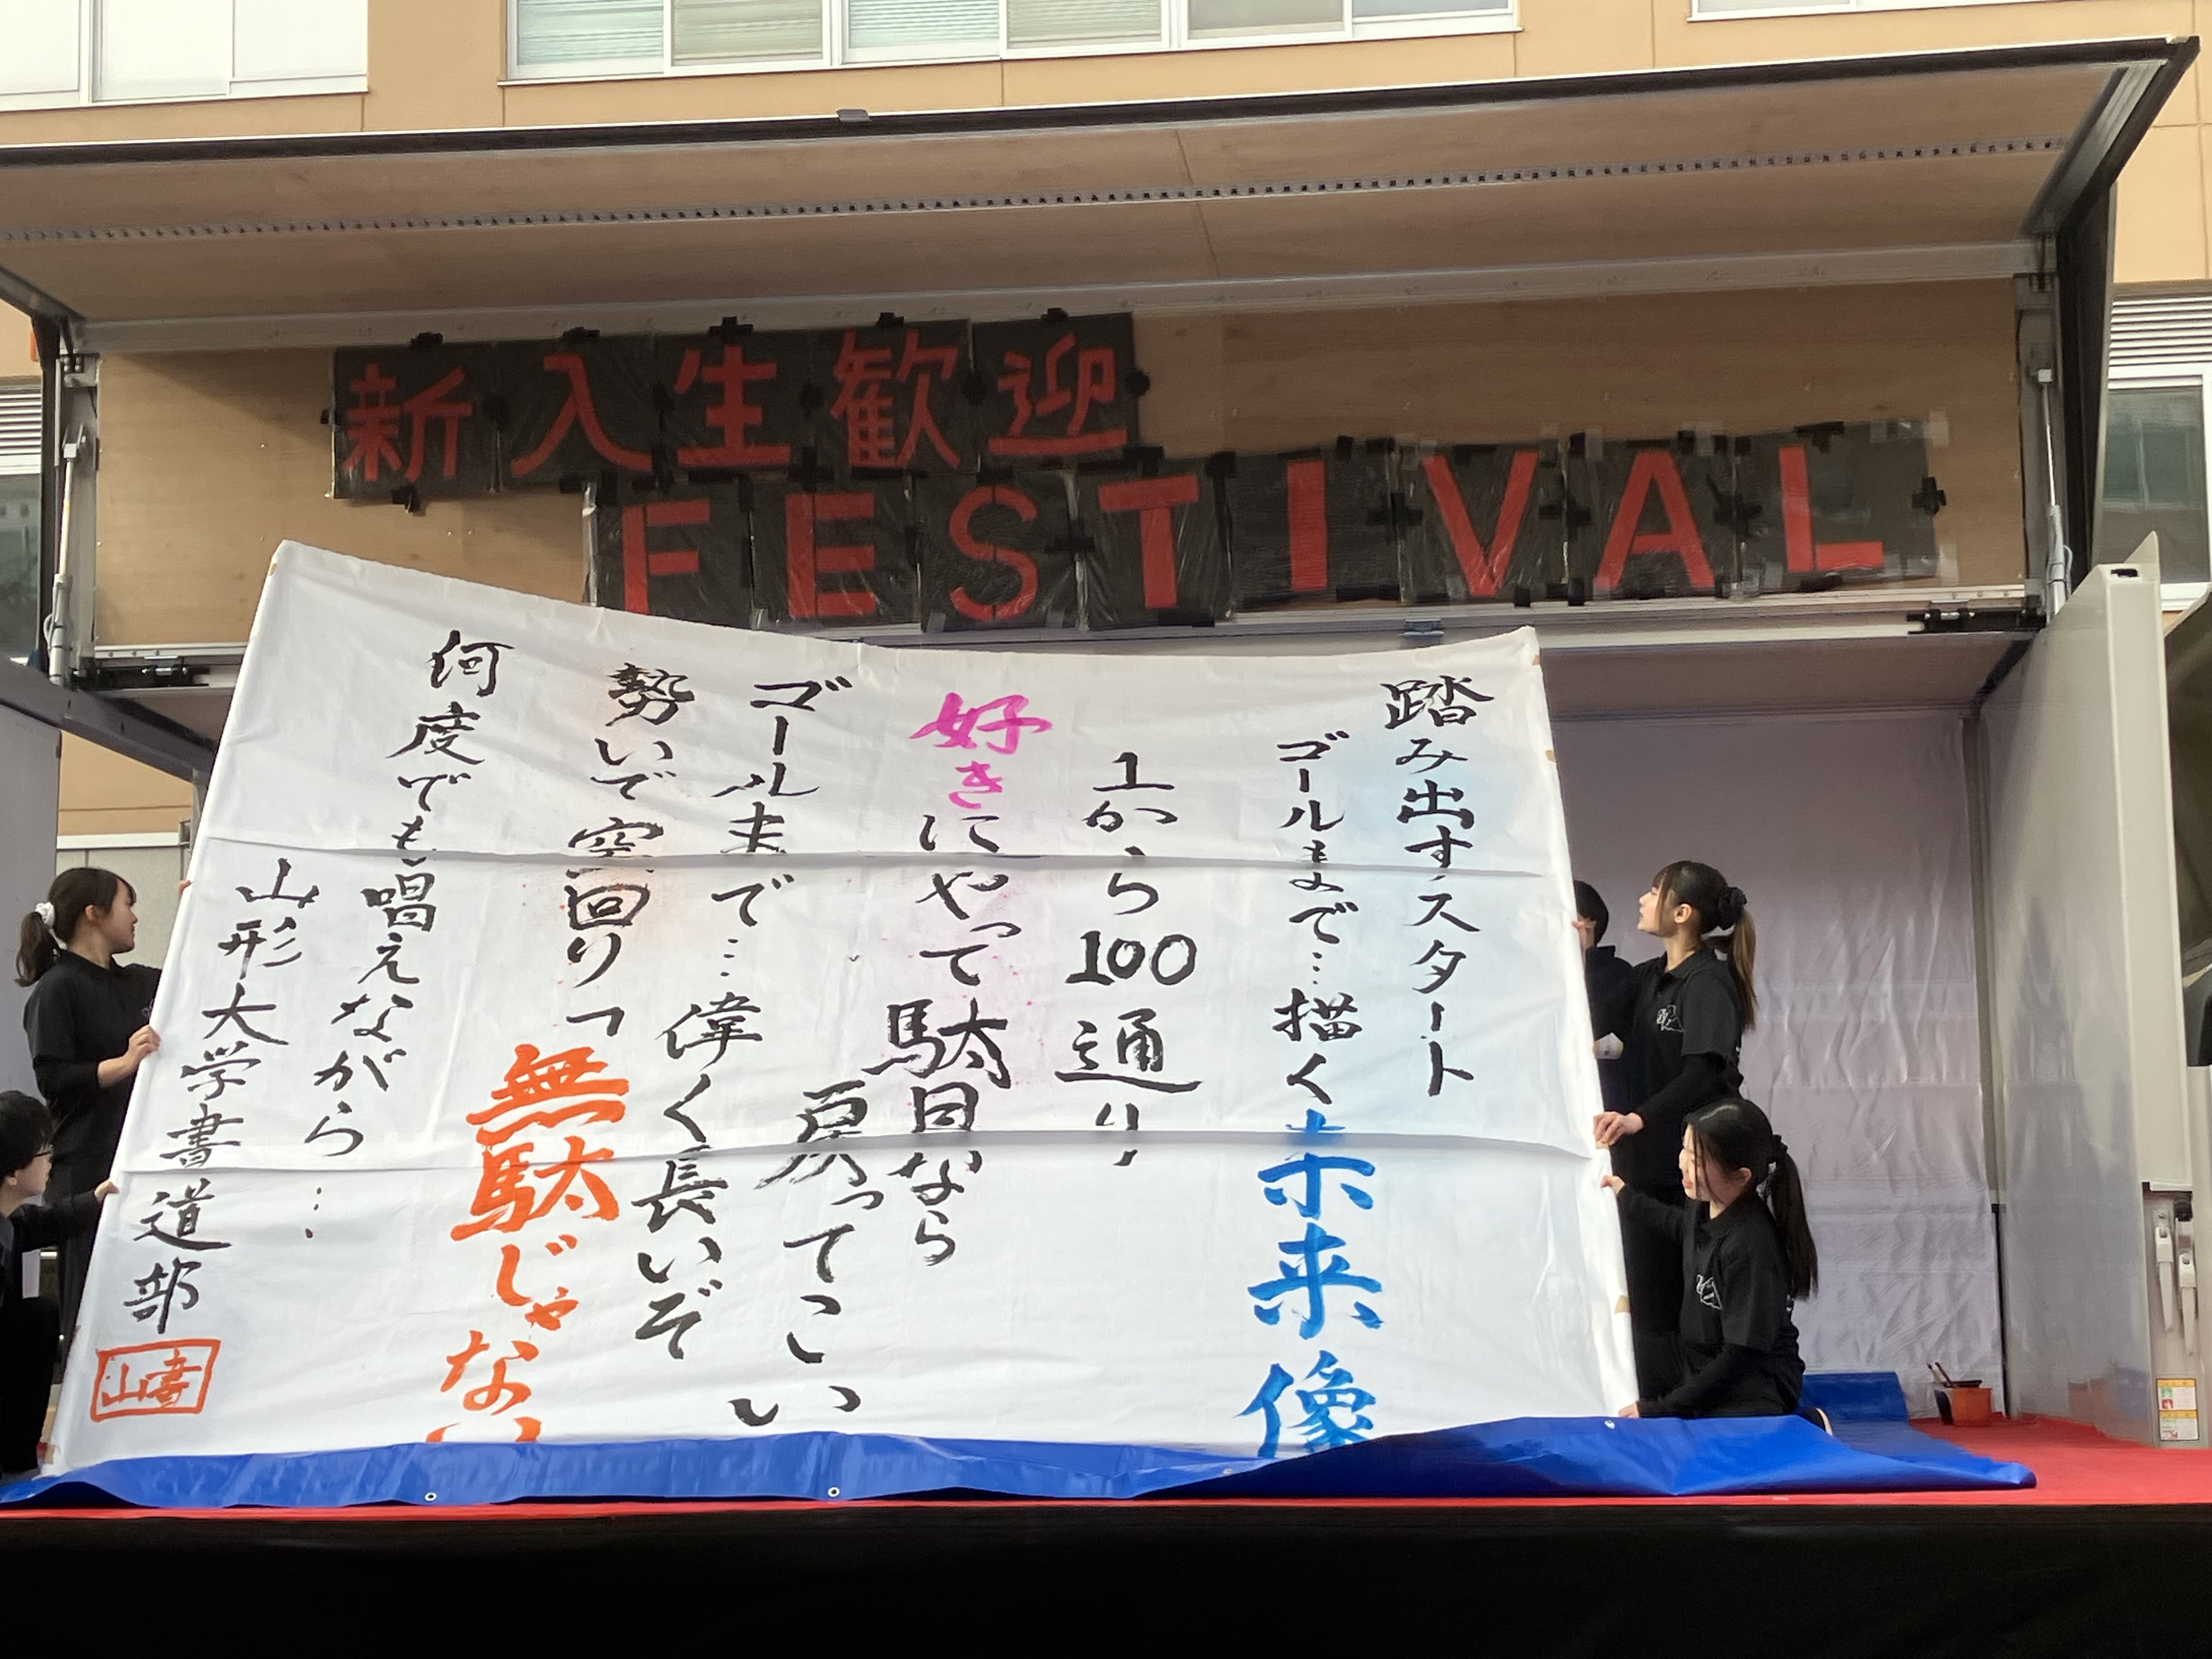 新入生歓迎
FESTIVAL
踏み出すスタート
ゴールまで…描く未来像
1から100通り
好きにやって駄目なら
戻ってこい
ゴールまで…偉く長いぞ
勢いで空回り「無駄じゃない
何度でも唱えながら…
山形大学書道部
山書